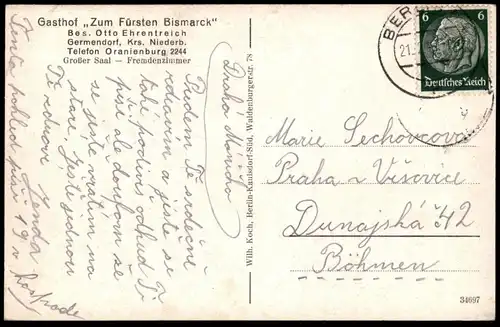 Gasthof „Zum Fürsten Bismarck"
Bes. Otto Ehrentreich
Germendorf, Krs. Niederb.
Telefon Oranienburg 2244
Großer Saal — Fremdenzimmer
Drahá Mařičko
Předem Tě srdečně
zdravím a jistě se
také podivíš odkud Ti
píši ale doufám že
se jistě vrátím na
stare. Ještě jednou
Tě zdraví
Jenda
Tento pohled píši
19 v hospodě
Wilh. Koch, Berlin-Kaulsdorf-Süd, Waldenburgerstr. 78
BER
21.
6
6
Deutsches Reich
Marie Sechovcova
Praha – Vršovice
Dunajská 42
Böhmen
34697